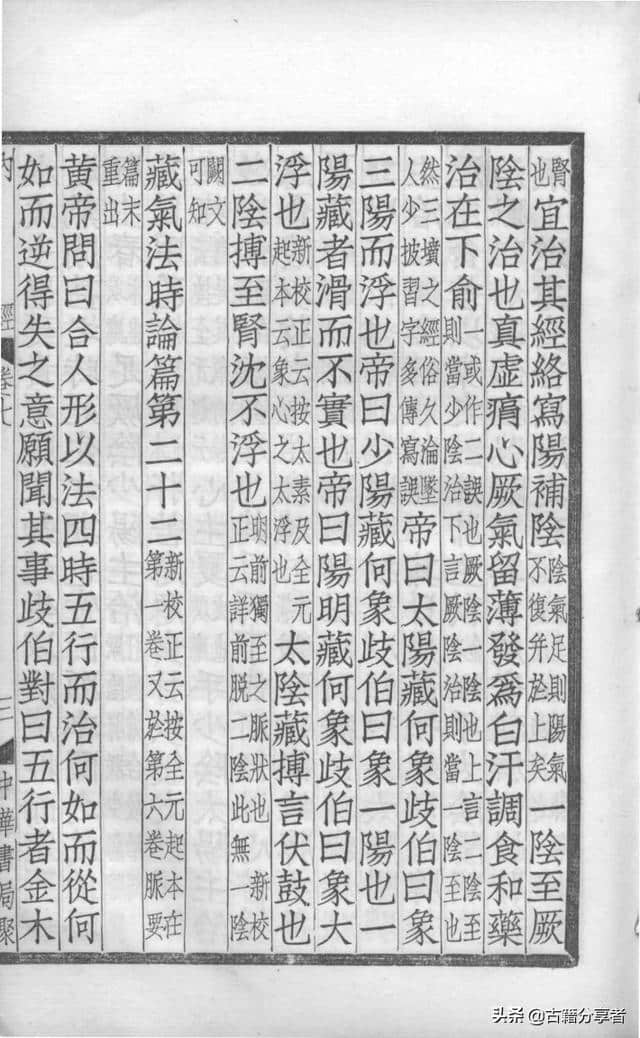 腎也宜治其經絡寫陽補陰陰氣足則陽氣不復弁於上矣一陰至厥
陰之治也真虛㾓心厥氣留薄發爲白汗調食和藥
治在下俞一或作二誤也厥陰一陰也上言二陰至則當少陰治下言厥陰治則當一陰至也
然三墳之經俗久淪墜人少披習字多傳寫誤帝曰太陽藏何象歧伯曰象
三陽而浮也帝曰少陽藏何象歧伯曰象一陽也一
陽藏者滑而不實也帝曰陽明藏何象歧伯曰象大
浮也新校正云按太素及全元起本云象心之太浮也太陰藏搏言伏鼓也
二陰搏至腎沈不浮也明前獨至之脈狀也新校正云詳前脫二陰此無一陰
闕文可知
藏氣法時論篇第二十二新校正云按全元起本在第一卷又於第六卷脈要
篇末重出
黃帝問曰合人形以法四時五行而治何如而從何
如而逆得失之意願聞其事歧伯對曰五行者金木
內經 卷七 三 中華書局聚
头条 @古籍分享者